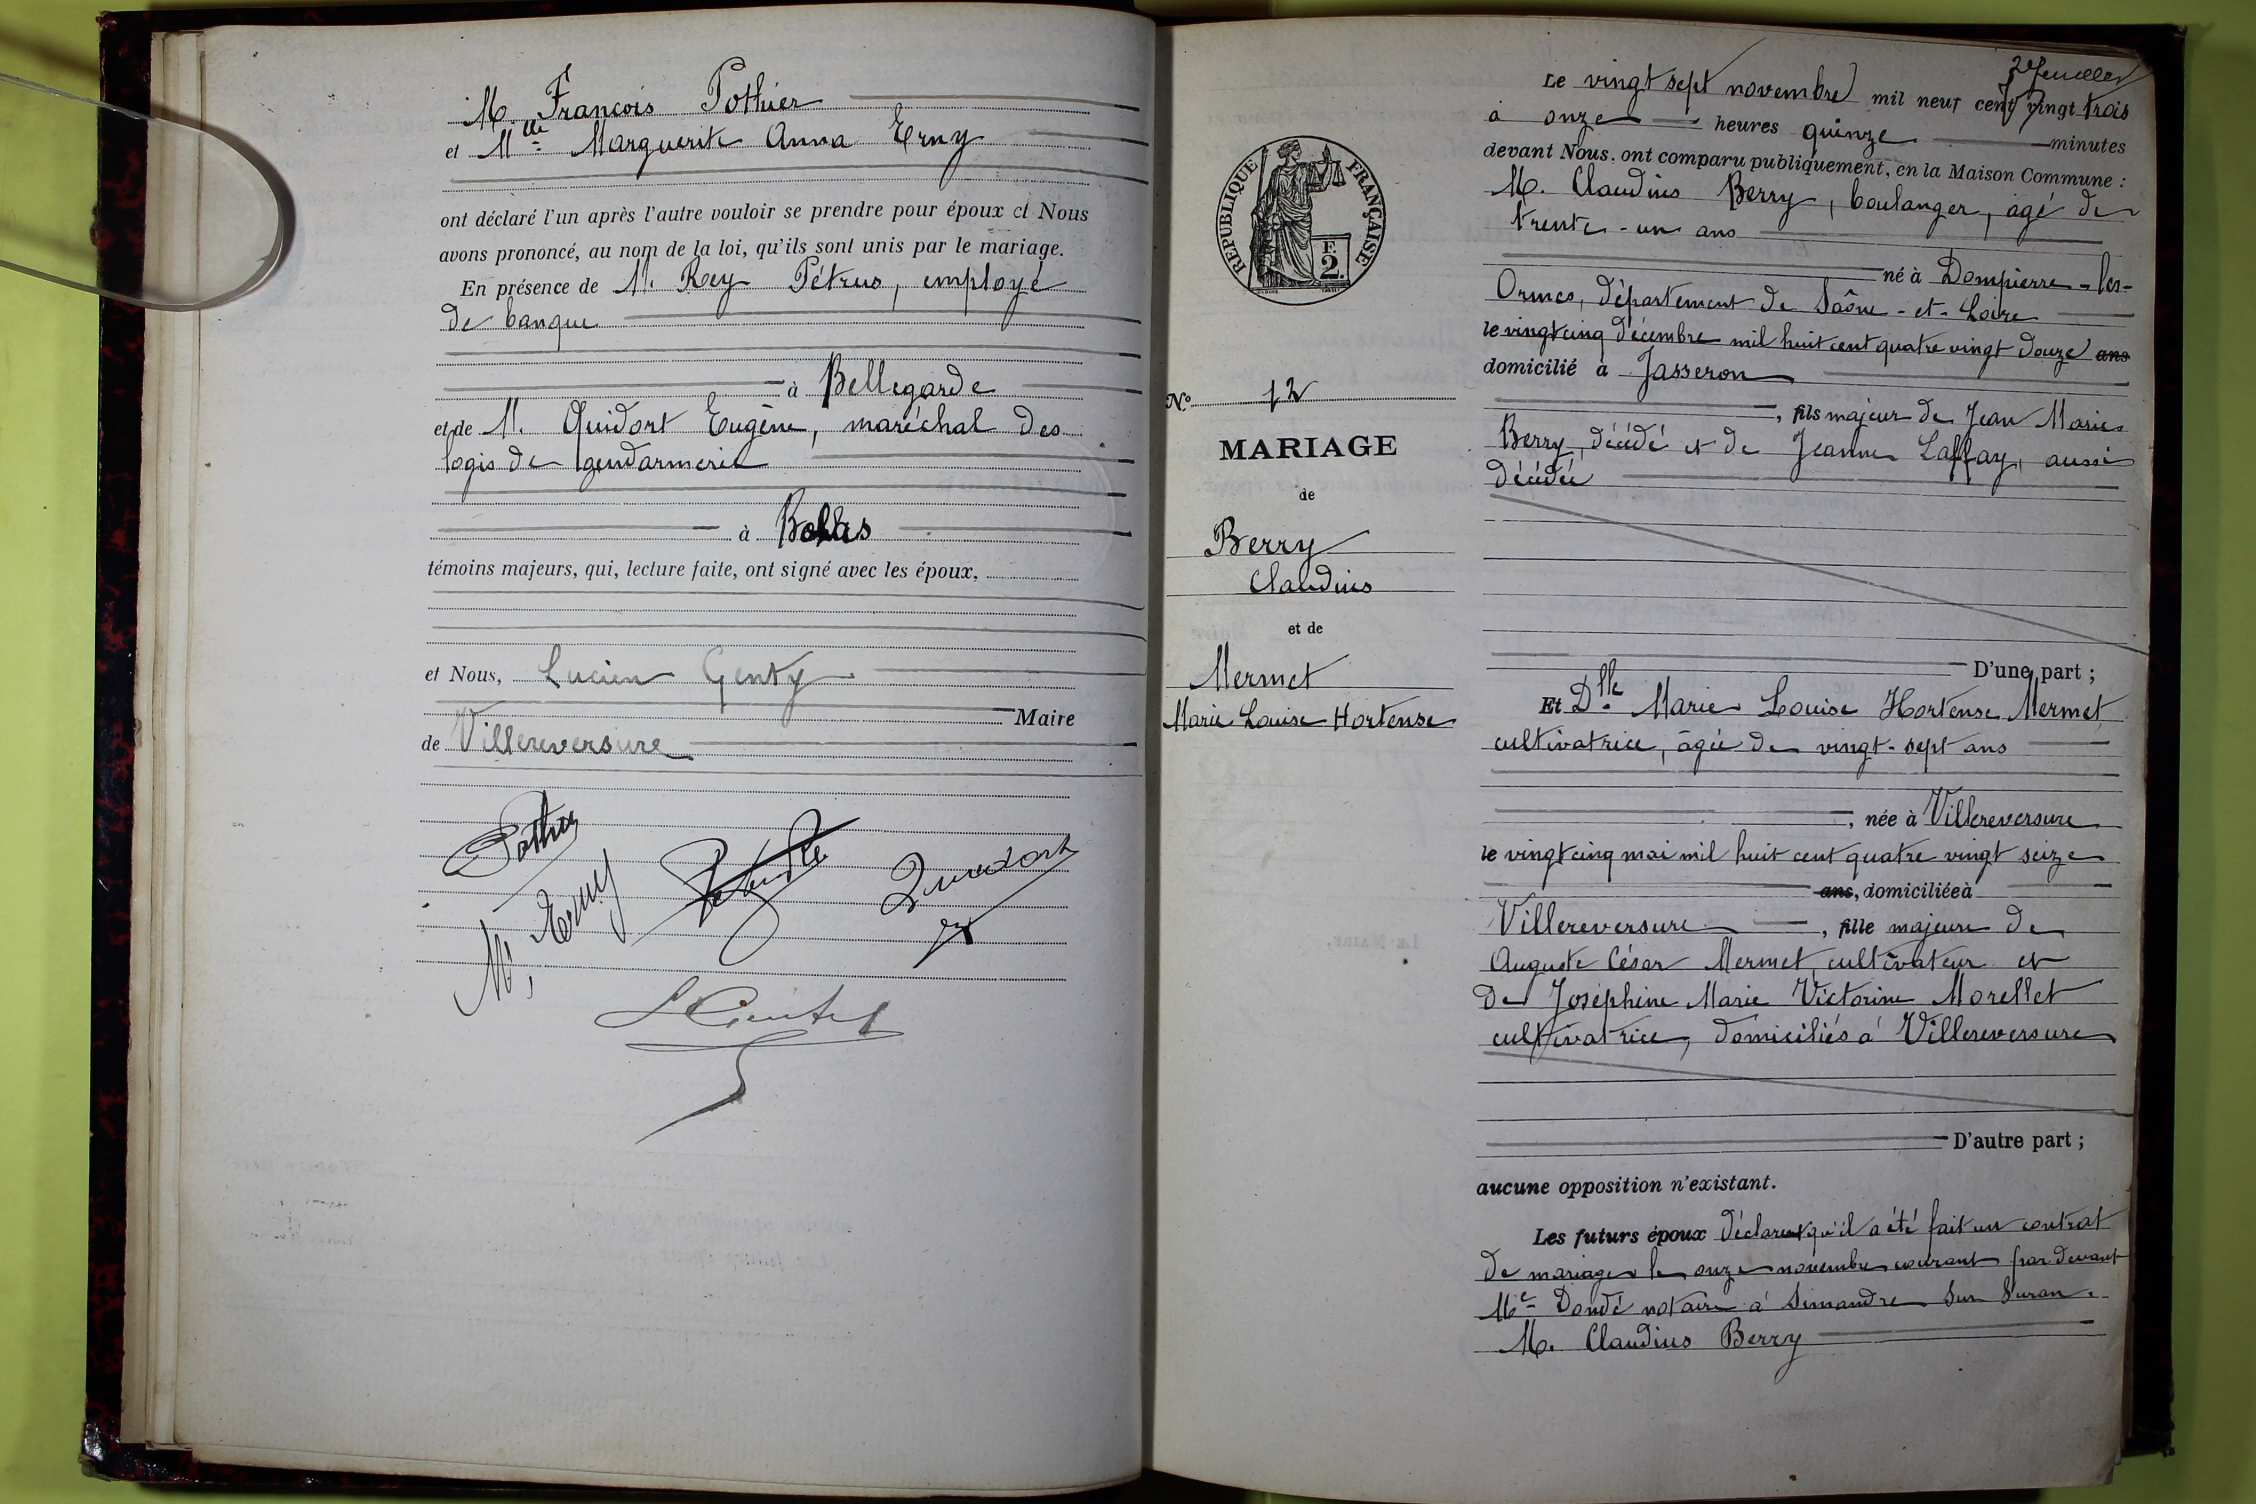 M. François Pothier
et Mlle Marguerite Anna Erny
ont déclaré l'un après l'autre vouloir se prendre pour époux et Nous
avons prononcé, au nom de la loi, qu'ils sont unis par le mariage.
En présence de M. Rey Pétrus, employé
de banque
à Bellegarde
et de M. Quidort Eugène, maréchal des
logis de gendarmerie
à
témoins majeurs, qui, lecture faite, ont signé avec les époux,
et Nous, Lucien Genty
Maire
de Villereversure
Pothier
M, Erny
Quidort
LGenty
2e feuillet
N° 12
MARIAGE
de
Berry
Claudius
et de
Mermet
Marie Louise Hortense
REPUBLIQUE FRANÇAISE
F.
2.
Le vingt sept novembre mil neuf cent vingt trois
à onze heures quinze minutes
devant Nous. ont comparu publiquement, en la Maison Commune :
M. Claudius Berry, boulanger, âgé de
trente-un ans
né à Dompierre-les-
Ormes, département de Saône-et-Loire
le vingt cinq décembre mil huit cent quatre vingt douze ans
domicilié à Jasseron
, fils majeur de Jean Marie
Berry, décédé et de Jeanne Laffay, aussi
décédée
D'une part ;
Et Dlle Marie Louise Hortense Mermet
cultivatrice, âgée de vingt-sept ans
, née à Villereversure
le vingt cinq mai mil huit cent quatre vingt seize
ans, domiciliée à
Villereversure, fille majeure de
Auguste César Mermet, cultivateur et
de Joséphine Marie Victorine Morellet
cultivatrice, domiciliés à Villereversure
D'autre part ;
aucune opposition n'existant.
Les futurs époux déclarent qu'il a été fait un contrat
de mariage le onze novembre courant par devant
Me Dondé notaire à Simandre sur Suran.
M. Claudius Berry